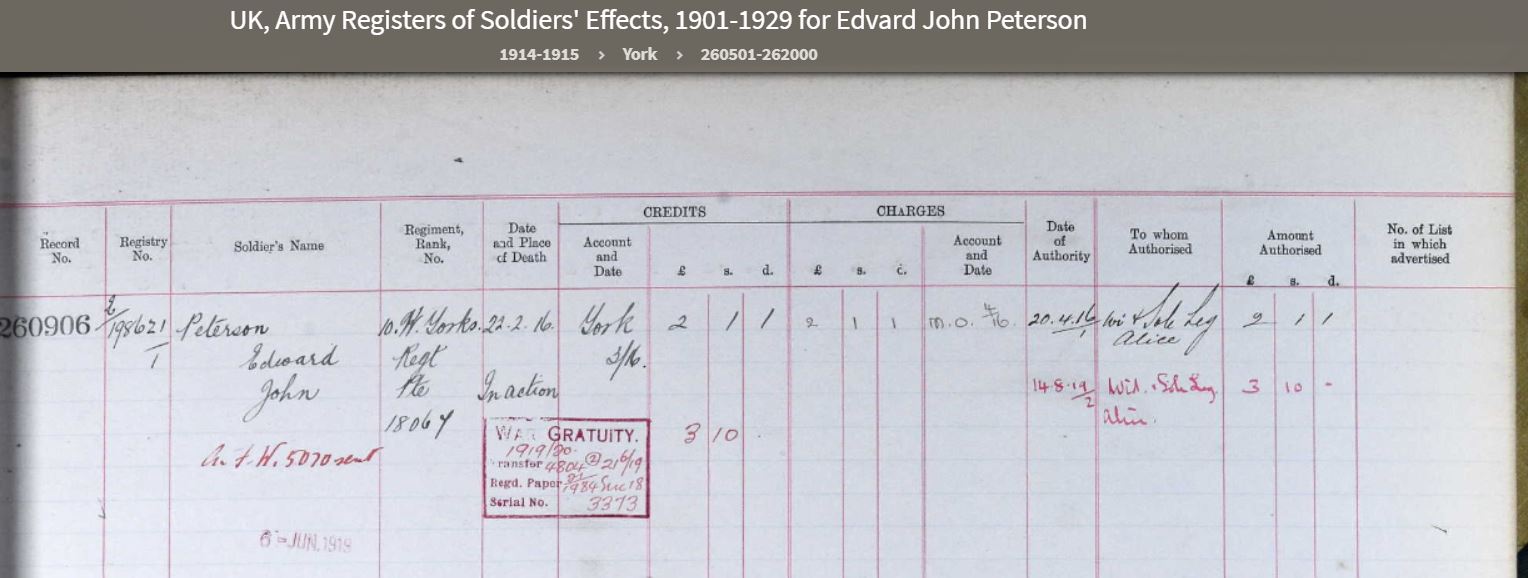 UK, Army Registers of Soldiers' Effects, 1901-1929 for Edvard John Peterson
1914-1915 > York > 260501-262000
CREDITS CHARGES
Record No. Registry No. Soldier's Name Regiment, Rank, No. Date and Place of Death Account and Date £ s. d. £ s. d. Account and Date Date of Authority To whom Authorised Amount Authorised £ s. d. No. of List in which advertised
260906 2/198621/1 Peterson 10. W. Yorks. 22.2.16. York 2 1 1 2 1 1 M.O. 4/16. 20.4.16 Wi & Sole Leg 2 1 1
Edward Regt 3/16. Alice
John Pte In action 14.8.19/2 Wid. & Sole Leg. 3 10 -
18067 Alice.
WAR GRATUITY. 3 10
A.F.W. 5070 sent 1919/20.
Transfer 4804 21/6/19
Regd. Paper
Serial No. 3373
6-JUN.1919